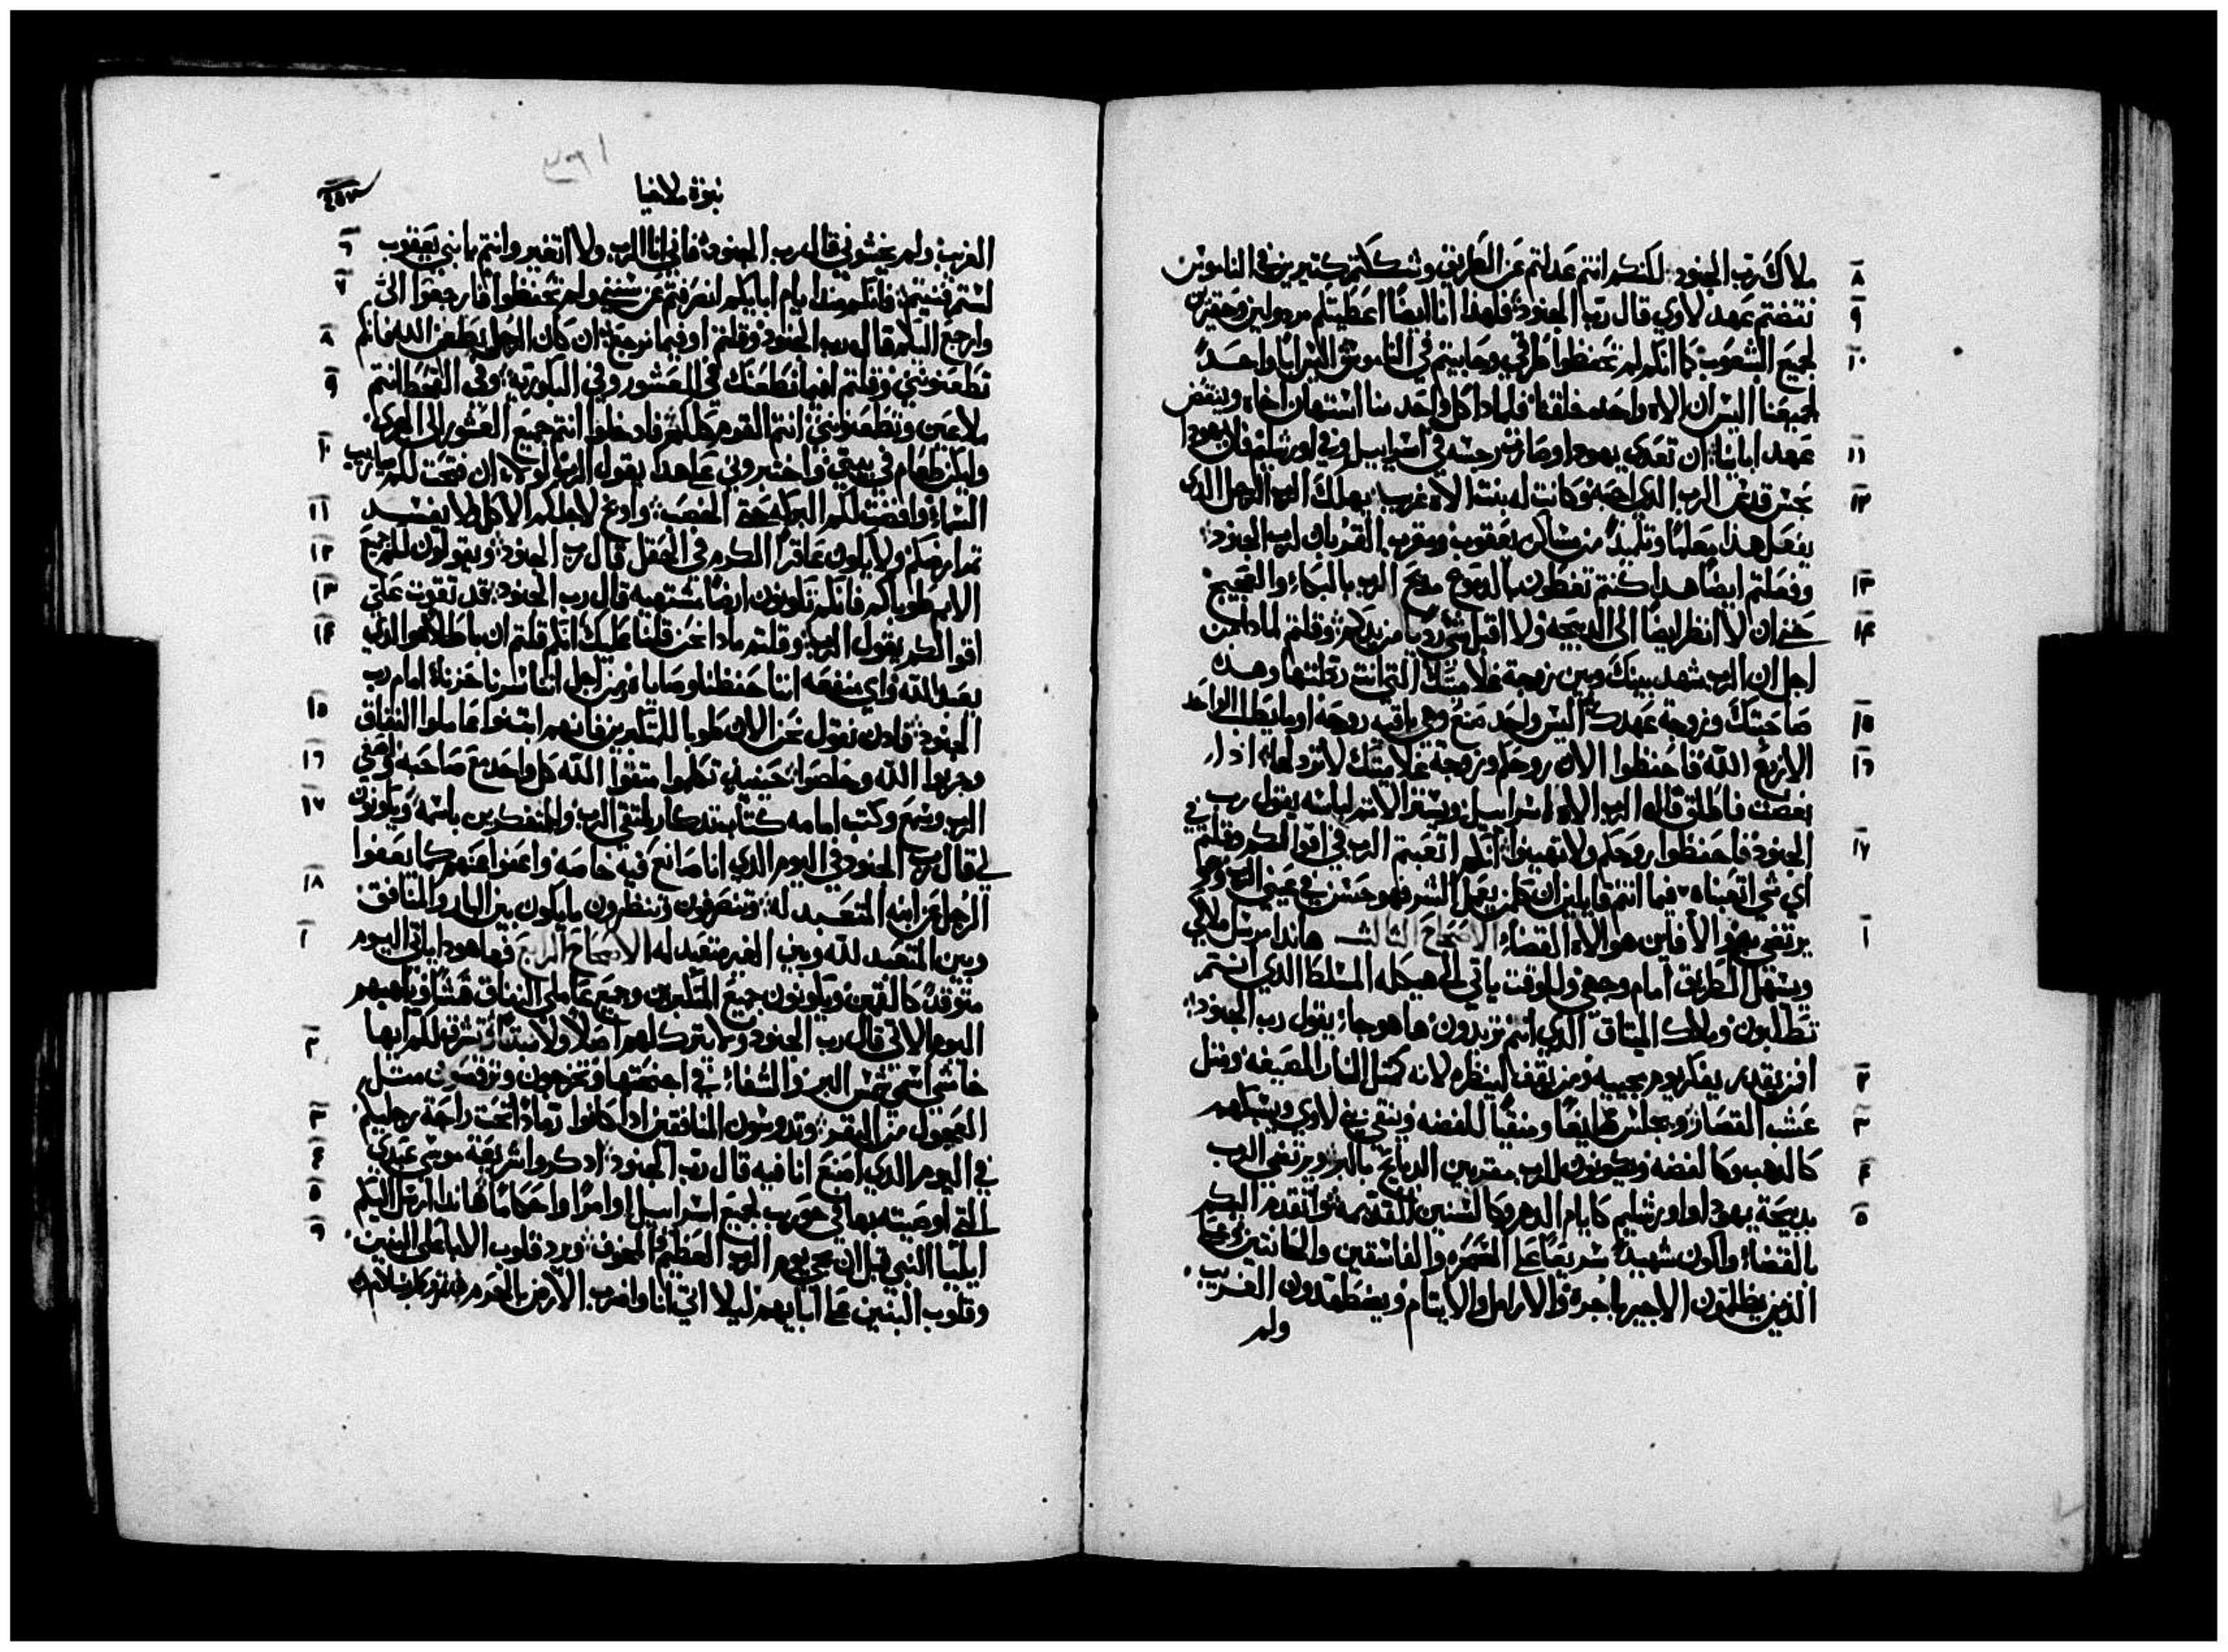 ٨ ملاك رب الجنود. لكنكم انتم عدلتم عن الطريق وشككتم كتيرين في الناموس
٩ نتضتم عهد لاوي قال رب الجنود فلهذا انا ايضا اعطيتكم مردولين وحقيرين
١٠ لجميع الشعوب كما انكم لم تحفظوا طرقي وحابيتم في الناموس اليس ابا واحد
لجميعنا اليس ان الاه واحد خلقنا فلمادا كل واحد منا استهان اخاه وينقض
١١ عهد اباينا ان تعدى يهودا وصارت رجسه في اسراييل وفي اورشليم فان يهودا
١٢ نجس قدس الرب الذي احبه وكانت له بنت الاه غريب يهلك الرب الرجل الدي
يفعل هذا معلما وتلميدا من مساكن يعقوب ومقرب القربان لرب الجنود
١٣ وفعلتم ايضا هدا كنتم تغطون بالدموع مدبح الرب بالبكاء والضجيج
١٤ حتى ان لا انظر ايضا الى الدبيحه ولا اقبل شي رديا من يدكم وقلتم لمادا من
اجل ان الرب شهد بينك وبين زوجة غلاميتك التي انت رذلتها وهده
١٥ صاحبتك وزوجة عهدك اليس واحد صنع وهي باقيه روحه او ما يطلب الواحد
١٦ الا زرع الله فاحفظوا الان روحكم وزوجة غلاميتك لا تردلها ادا
بغضت فاطلق قال الرب الاه اسراييل ويستر الاتم لباسه يقول رب
١٧ الجنود فاحفظوا روحكم ولا تهينوا انكم اتعبتم الرب في اقوالكم وقلتم في
اي شي اتعبناه فيما انتم قايلين ان كل من يعمل الشر فهو حسن في عيني الرب
١ يرتضي والا فاين هو الاه القضاء الاصحاح الثالث هاندا مرسل ملاكي
ويسهل الطريق امام وجهي وللوقت ياتي الى هيكله المسلط الدي انتم
تطلبون وملاك الميتاق الدي انتم تريدون ها هو جاء يقول رب الجنود
٢ افمن يقدر يفكر يوم مجييه ومن يقف لينظره لانه كمتل النار المصفيه ومتل
٣ عشب القصار ويجلس ممحصا ومنقيا للفضه وينقي بني لاوي ويسبكهم
٤ كالدهب وكالفضه ويكونون للرب مقربين الدبايح بالبر ويرتضي الرب
٥ بدبيحة يهودا واورشليم كايام الدهر وكالسنين القديمه واتقدم اليكم
بالقضاء واكون شهيدا سريعا على السحره والفاسقين والحانتين
الذين يظلمون الاجير باجره والارامل والايتام ويضطهدون الغريب
ولم
نبوة ملاخيا
٦ الغريب ولم يخشوني قال رب الجنود فاني انا الرب ولا اتغير وانتم يا بني يعقوب
٧ لستم فنيتم فانكم مند ايام ابايكم انصرفتم عن سنني ولم تحفظوا فارجعوا الي
٨ وارجع اليكم قال رب الجنود وقلتم او فيما نرجع ان كان الرجل يطعن الله فانكم
٩ تطعنونني وقلتم فيما نطعنك في العشور وفي البكوريه وفي القحط انتم
ملاعين وتطعنونني انتم القوم كلكم فادخلوا انتم جميع العشور الى الهري
١٠ وليكن طعام في بيتي واختبروني على هدا يقول الرب لولا ان فتحت لكم ميازيب
١١ السماء وافضت لكم البركه حتى الخصب وادع لاجلكم الاكل ولا يفسد
١٢ تمر ارضكم ولا يكون عاقرا الكرم في الحقل قال رب الجنود ويقولون لكم جميع
١٣ الامم طوباكم فانكم تكونون ارضا مشتهيه قال رب الجنود قد تقوت علي
١٤ اقوالكم يقول الرب وقلتم مادا نحن قلنا عليك انكم قلتم ان باطلا هو الدي
يعبد الله واي منفعه اننا حفظنا وصاياه ومن اجل اننا سرنا حزناء امام رب
١٥ الجنود فادن نقول نحن الان طوبا للمتكبرين فانهم ابتنوا عاملوا النفاق
١٦ وجربوا الله وخلصوا حينيد تكلموا متقوا الله كل واحد مع صاحبه فاصغى
١٧ الرب وسمع وكتب امامه كتاب تدكار لمتقي الرب والمتفكرين باسمه ويكونون
لي قال رب الجنود في اليوم الدي انا صانع فيه خاصه واعفوا عنهم كما يعفوا
١٨ الرجل عن ابنه المتعبد له وتنصرفون وتنظرون ما يكون بين البار والمنافق
١ وبين المتعبد لله وبين الغير متعبد له الاصحاح الرابع فها هودا ياتي اليوم
متوقدا كالتنور ويكونون جميع المتكبرين وجميع عاملي النفاق هشا ويلهبهم
٢ اليوم الاتي قال رب الجنود ولا يترك لهم اصلا ولا نبتا وتشرق لكم ايها
خاشي اسمي شمس البر والشفاء في اجنحتها وتخرجون وترقصون متل
٣ العجول من البقر وتدوسون المنافقين ادا كانوا رمادا تحت راحة رجليكم
٤ في اليوم الدي اصنع انا فيه قال رب الجنود ادكروا شريعة موسى عبدي
٥ التي اوصيته بها في حوريب لجميع اسراييل اوامرا واحكاما هاندا ارسل اليكم
٦ ايليا النبي قبل ان يجي يوم الرب العظيم المخوف ويرد قلوب الابا على البنين
وقلوب البنين على ابايهم ليلا اتي انا واضرب الارض بالحرم